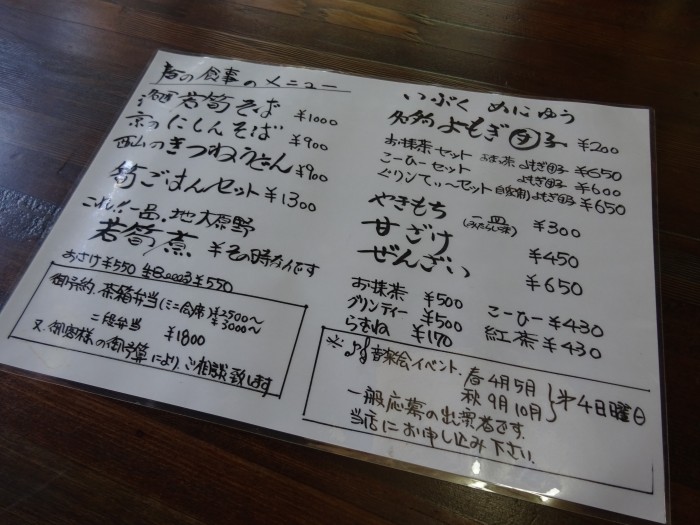 春の食事のメニュー
若筍そば ¥1000
京のにしんそば ¥900
西山のきつねうどん ¥900
筍ごはんセット ¥1300
これ!!一品.地大原野
若筍煮 ¥その時なんです
おさけ¥550 生ビール ¥550
御予約.茶箱弁当(ミニ会席)¥2500〜
¥3000〜
二段弁当 ¥1800
又、御客様の御予算により、ご相談致します
いっぷく めにゅう
名物よもぎ団子 ¥200
お抹茶セット よもぎ団子 ¥650
こーひーセット よもぎ団子 ¥600
ぐりんてぃーセット 自家製よもぎ団子 ¥650
やきもち 一皿 ¥300
甘ざけ ¥450
ぜんざい ¥650
お抹茶 ¥500
グリンティー ¥500
らむね ¥170
こーひー ¥430
紅茶 ¥430
※音楽会イベント. 春4月5月
秋9月10月 第4日曜日
一般応募の出演者です.
当店にお申し込み下さい.